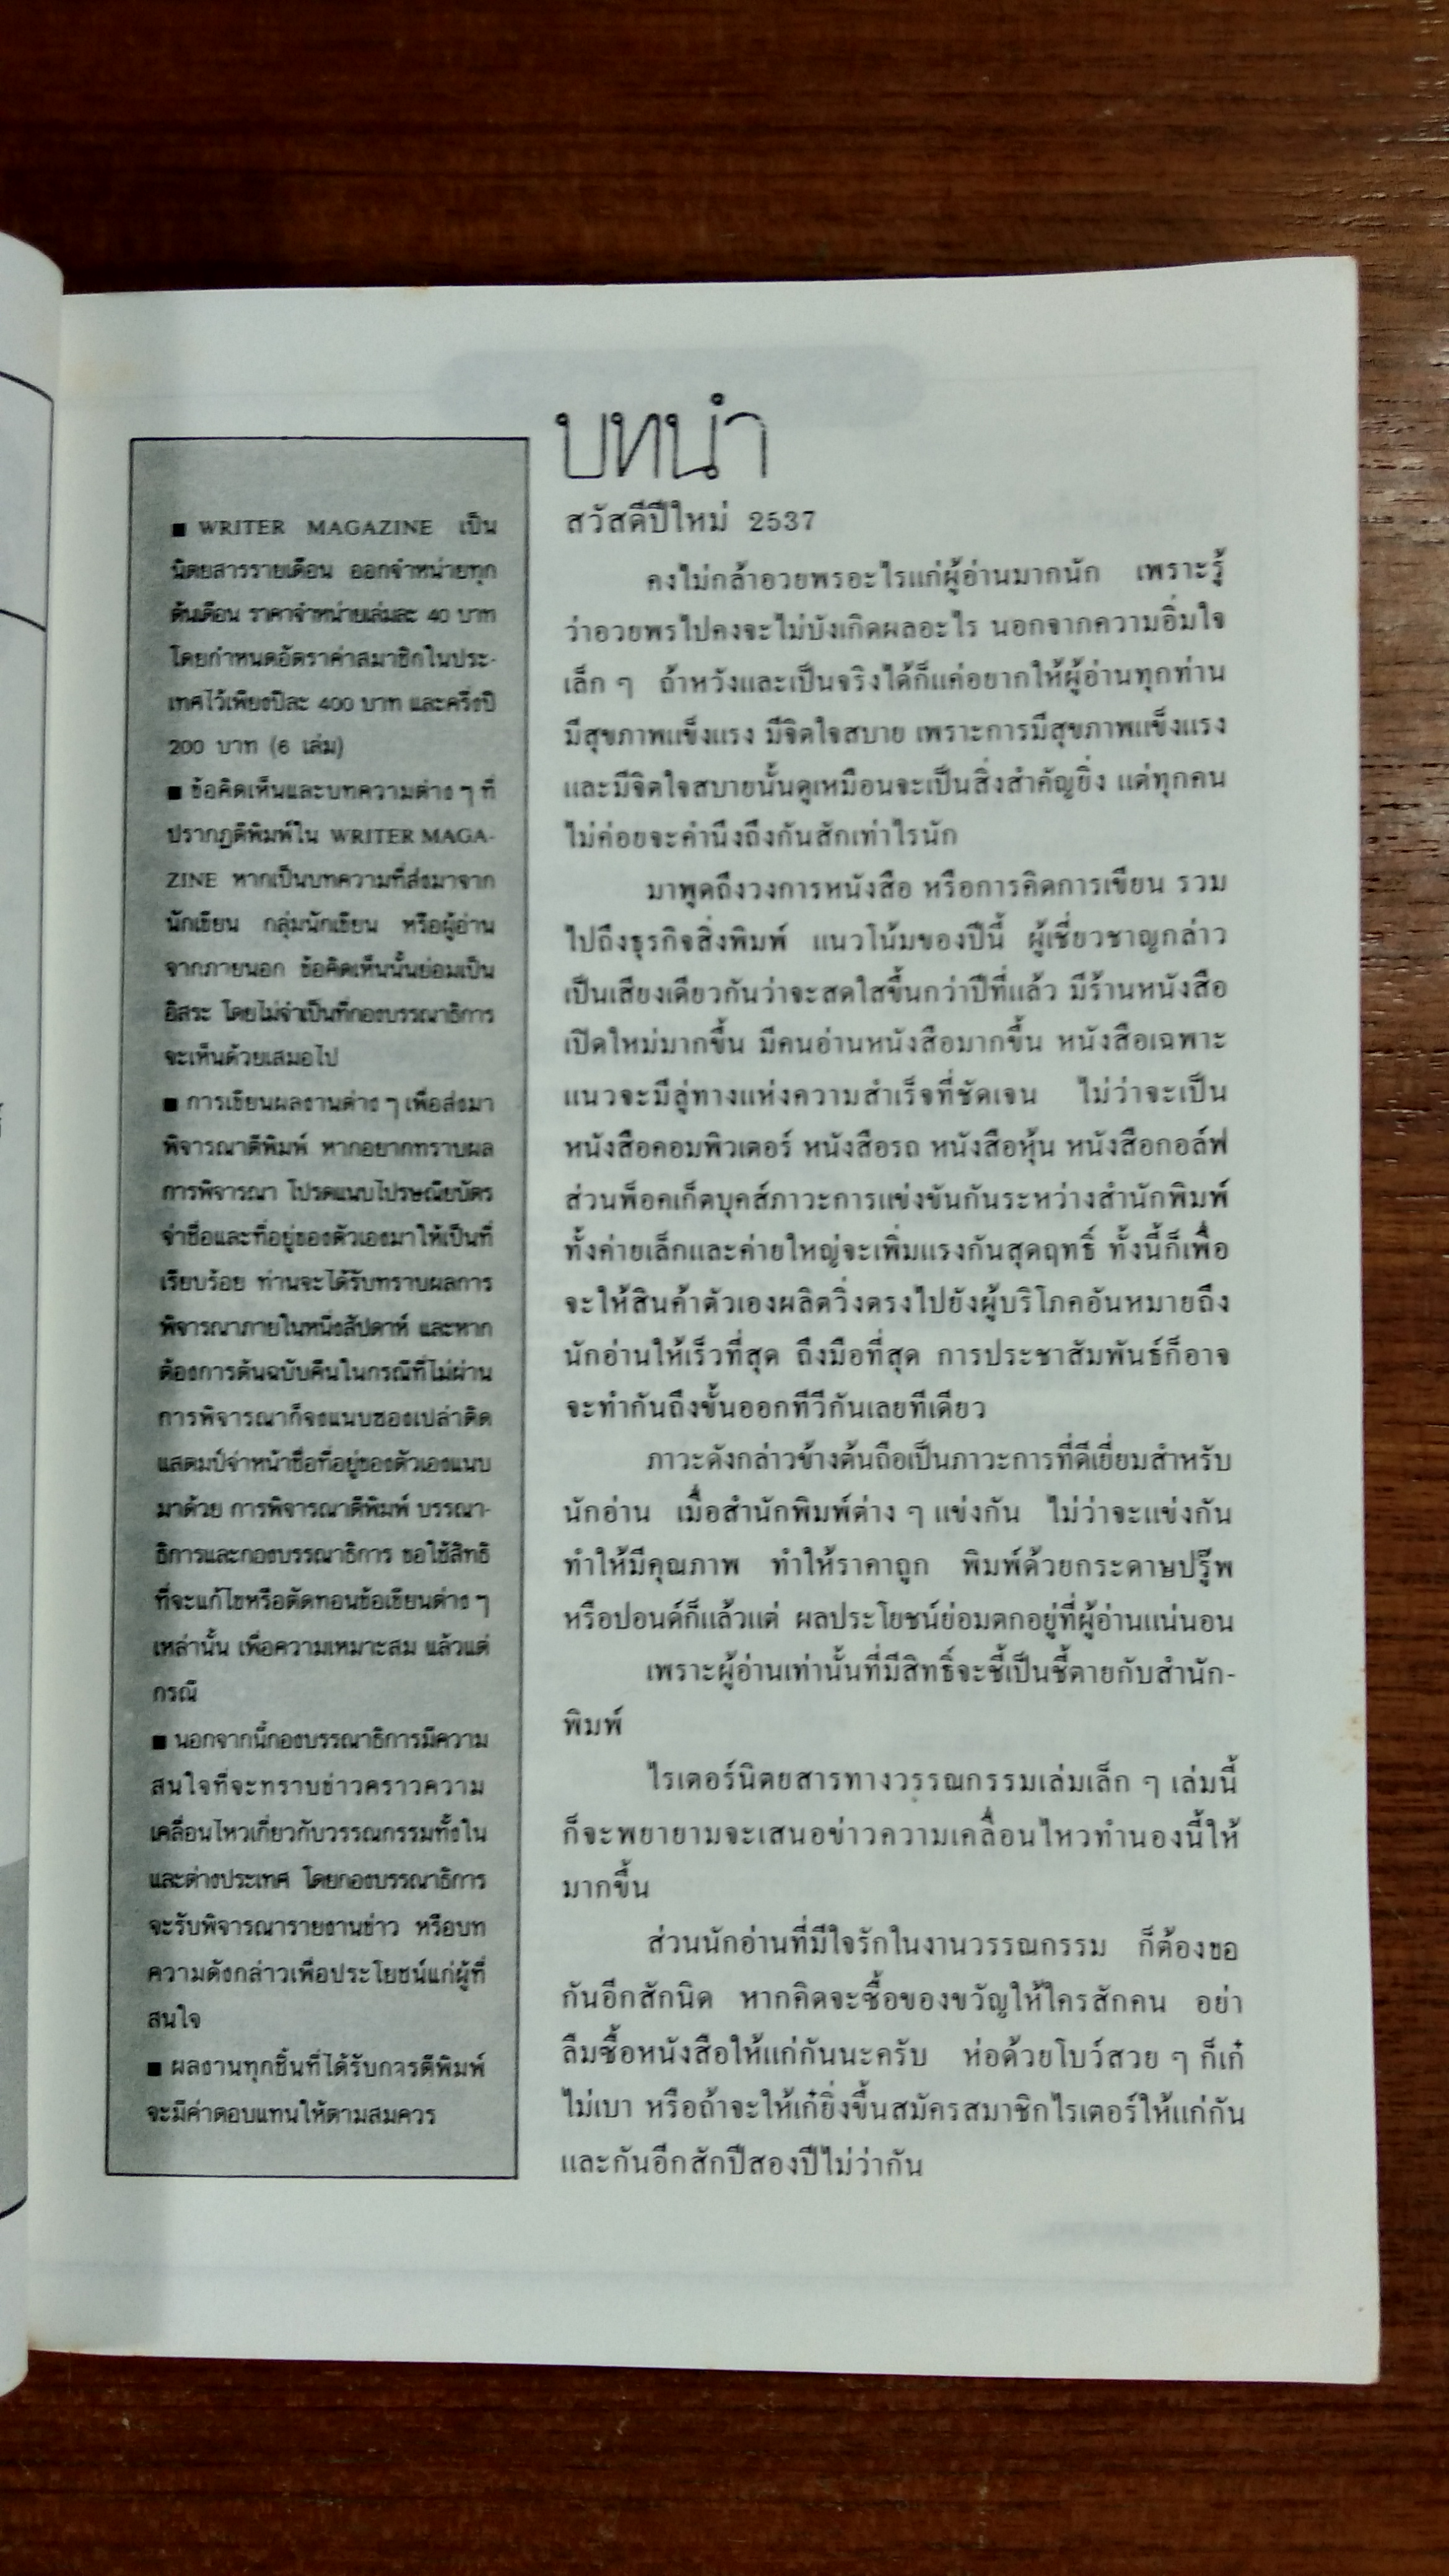 บทนำ
สวัสดีปีใหม่ 2537
คงไม่กล้าอวยพรอะไรแก่ผู้อ่านมากนัก เพราะรู้
ว่าอวยพรไปคงจะไม่บังเกิดผลอะไร นอกจากความอิ่มใจ
เล็ก ๆ ถ้าหวังและเป็นจริงได้ก็แค่อยากให้ผู้อ่านทุกท่าน
มีสุขภาพแข็งแรง มีจิตใจสบาย เพราะการมีสุขภาพแข็งแรง
และมีจิตใจสบายนั้นดูเหมือนจะเป็นสิ่งสำคัญยิ่ง แต่ทุกคน
ไม่ค่อยจะคำนึงถึงกันสักเท่าไรนัก
มาพูดถึงวงการหนังสือ หรือการคิดการเขียน รวม
ไปถึงธุรกิจสิ่งพิมพ์ แนวโน้มของปีนี้ ผู้เชี่ยวชาญกล่าว
เป็นเสียงเดียวกันว่าจะสดใสขึ้นกว่าปีที่แล้ว มีร้านหนังสือ
เปิดใหม่มากขึ้น มีคนอ่านหนังสือมากขึ้น หนังสือเฉพาะ
แนวจะมีลู่ทางแห่งความสำเร็จที่ชัดเจน ไม่ว่าจะเป็น
หนังสือคอมพิวเตอร์ หนังสือรถ หนังสือหุ้น หนังสือกอล์ฟ
ส่วนพ็อคเก็ตบุคส์ภาวะการแข่งขันกันระหว่างสำนักพิมพ์
ทั้งค่ายเล็กและค่ายใหญ่จะเพิ่มแรงกันสุดฤทธิ์ ทั้งนี้ก็เพื่อ
จะให้สินค้าตัวเองผลิตวิ่งตรงไปยังผู้บริโภคอันหมายถึง
นักอ่านให้เร็วที่สุด ถึงมือที่สุด การประชาสัมพันธ์ก็อาจ
จะทำกันถึงขั้นออกทีวีกันเลยทีเดียว
ภาวะดังกล่าวข้างต้นถือเป็นภาวะการที่ดีเยี่ยมสำหรับ
นักอ่าน เมื่อสำนักพิมพ์ต่าง ๆ แข่งกัน ไม่ว่าจะแข่งกัน
ทำให้มีคุณภาพ ทำให้ราคาถูก พิมพ์ด้วยกระดาษปรู๊พ
หรือปอนด์ก็แล้วแต่ ผลประโยชน์ย่อมตกอยู่ที่ผู้อ่านแน่นอน
เพราะผู้อ่านเท่านั้นที่มีสิทธิ์จะชี้เป็นชี้ตายกับสำนัก-
พิมพ์
ไรเตอร์นิตยสารทางวรรณกรรมเล่มเล็ก ๆ เล่มนี้
ก็จะพยายามจะเสนอข่าวความเคลื่อนไหวทำนองนี้ให้
มากขึ้น
ส่วนนักอ่านที่มีใจรักในงานวรรณกรรม ก็ต้องขอ
กันอีกสักนิด หากคิดจะซื้อของขวัญให้ใครสักคน อย่า
ลืมซื้อหนังสือให้แก่กันนะครับ ห่อด้วยโบว์สวย ๆ ก็เก๋
ไม่เบา หรือถ้าจะให้เก๋ยิ่งขึ้นสมัครสมาชิกไรเตอร์ให้แก่กัน
และกันอีกสักปีสองปีไม่ว่ากัน
■ WRITER MAGAZINE เป็น
นิตยสารรายเดือน ออกจำหน่ายทุก
ต้นเดือน ราคาจำหน่ายเล่มละ 40 บาท
โดยกำหนดอัตราค่าสมาชิกในประ-
เทศไว้เพียงปีละ 400 บาท และครึ่งปี
200 บาท (6 เล่ม)
■ ข้อคิดเห็นและบทความต่าง ๆ ที่
ปรากฏตีพิมพ์ใน WRITER MAGA-
ZINE หากเป็นบทความที่ส่งมาจาก
นักเขียน กลุ่มนักเขียน หรือผู้อ่าน
จากภายนอก ข้อคิดเห็นนั้นย่อมเป็น
อิสระ โดยไม่จำเป็นที่กองบรรณาธิการ
จะเห็นด้วยเสมอไป
■ การเขียนผลงานต่าง ๆ เพื่อส่งมา
พิจารณาตีพิมพ์ หากอยากทราบผล
การพิจารณา โปรดแนบไปรษณียบัตร
จ่าชื่อและที่อยู่ของตัวเองมาให้เป็นที่
เรียบร้อย ท่านจะได้รับทราบผลการ
พิจารณาภายในหนึ่งสัปดาห์ และหาก
ต้องการต้นฉบับคืนในกรณีที่ไม่ผ่าน
การพิจารณาก็จงแนบซองเปล่าติด
แสตมป์จ่าหน้าชื่อที่อยู่ของตัวเองแนบ
มาด้วย การพิจารณาตีพิมพ์ บรรณา-
ธิการและกองบรรณาธิการ ขอใช้สิทธิ
ที่จะแก้ไขหรือตัดทอนข้อเขียนต่าง ๆ
เหล่านั้น เพื่อความเหมาะสม แล้วแต่
กรณี
■ นอกจากนี้กองบรรณาธิการมีความ
สนใจที่จะทราบข่าวคราวความ
เคลื่อนไหวเกี่ยวกับวรรณกรรมทั้งใน
และต่างประเทศ โดยกองบรรณาธิการ
จะรับพิจารณารายงานข่าว หรือบท
ความดังกล่าวเพื่อประโยชน์แก่ผู้ที่
สนใจ
■ ผลงานทุกชิ้นที่ได้รับการตีพิมพ์
จะมีค่าตอบแทนให้ตามสมควร